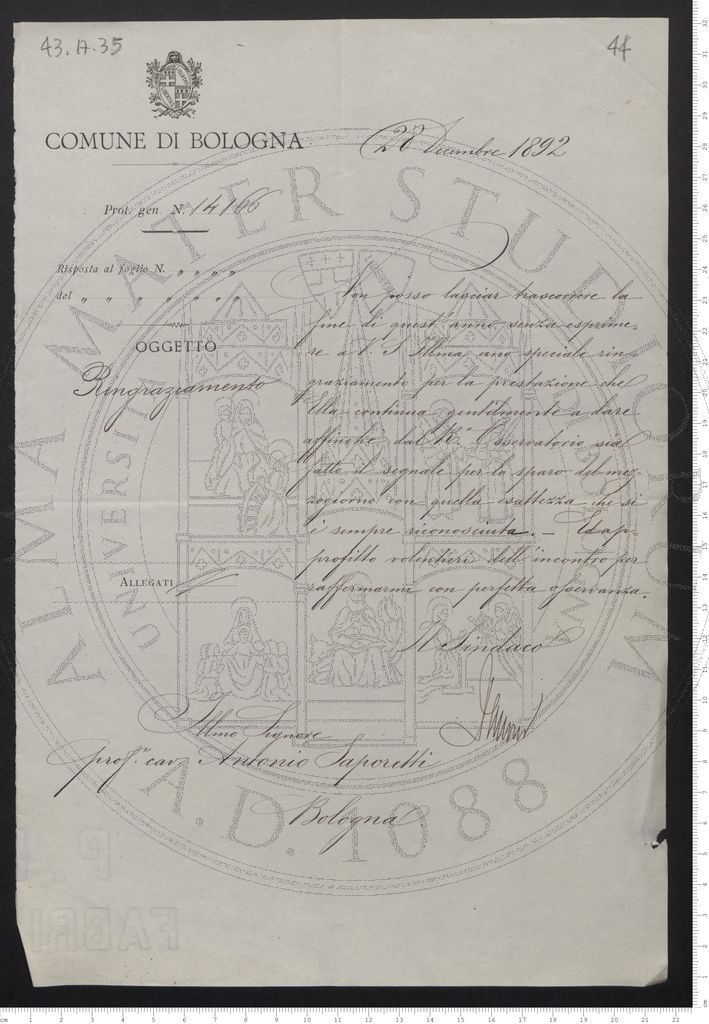 43.A.35
44
COMUNE DI BOLOGNA
28 Dicembre 1892
Prot. gen N. 14166
Risposta al foglio N. " " " "
del " " " " " " "
OGGETTO
Ringraziamento
Non posso lasciar trascorrere la
fine di quest'anno senza esprime-
re a V. S. Illma uno speciale rin-
graziamento per la prestazione che
Ella continua gentilmente a dare
affinché dal R.° Osservatorio sia
fatto il segnale per lo sparo del mez-
zogiorno con quella esattezza che si
è sempre riconosciuta. — Ed ap-
profitto volentieri dell'incontro per
raffermarmi con perfetta osservanza.
ALLEGATI
Il Sindaco
Illmo Signore
prof.r cav. Antonio Saporetti
Bologna
ALMA MATER STUDIORUM
A.D. 1088
P.
FABRI